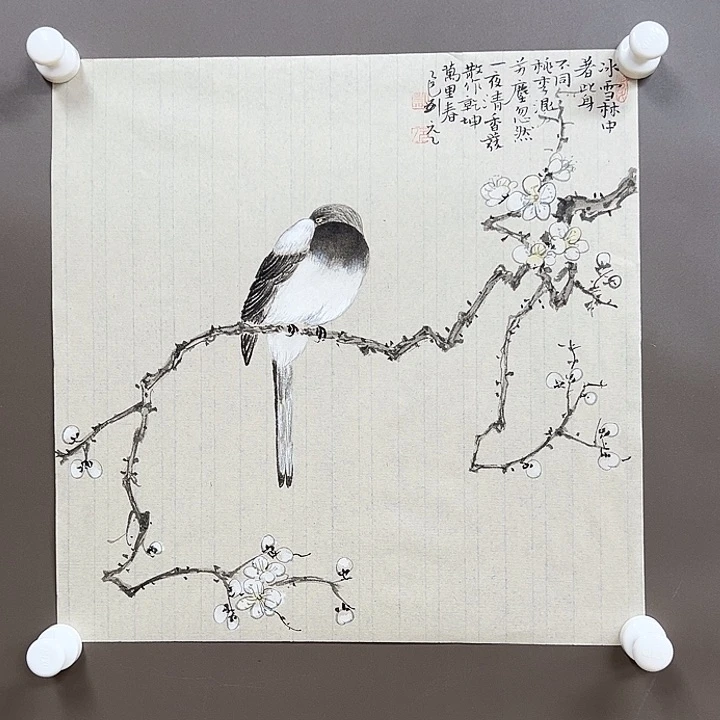 冰雪林中
著此身
不同
桃李混
芳塵忽然
一夜清香發
散作乾坤
萬里春
乙巳